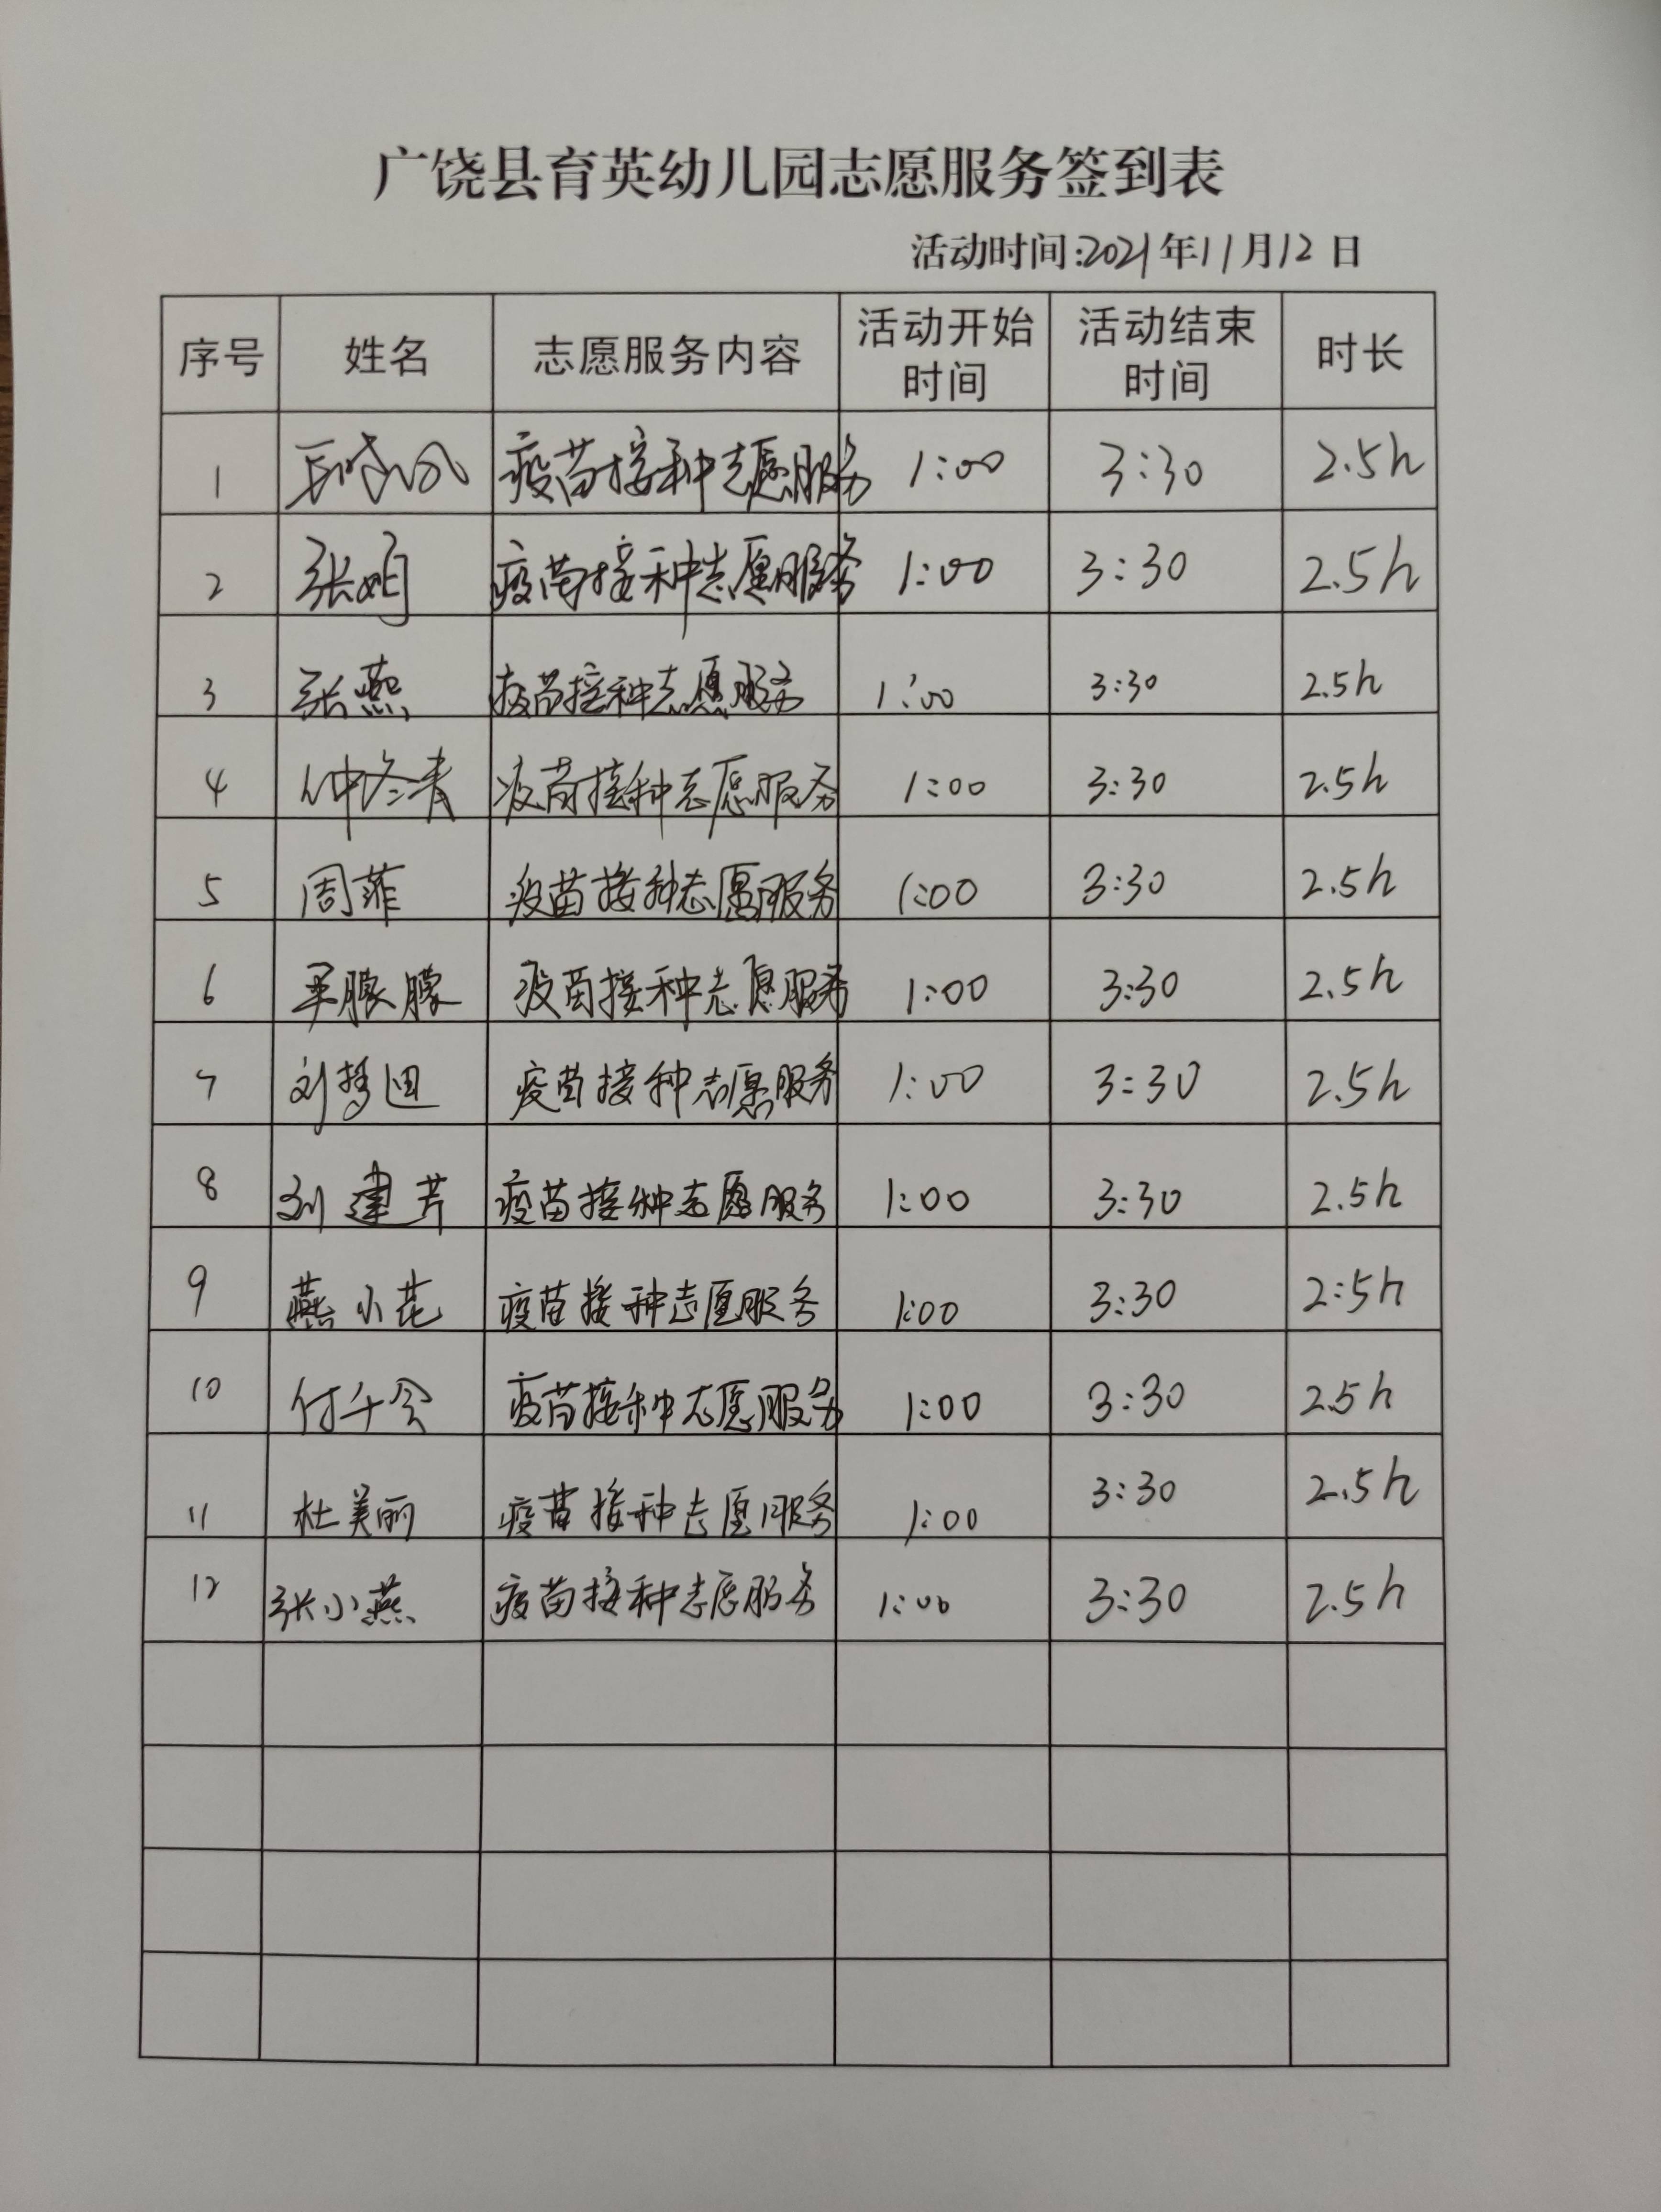 广饶县育英幼儿园志愿服务签到表
活动时间:2021年11月12日
序号 姓名 志愿服务内容 活动开始时间 活动结束时间 时长
1 疫苗接种志愿服务 1:00 3:30 2.5h
2 张娟 疫苗接种志愿服务 1:00 3:30 2.5h
3 张燕 疫苗接种志愿服务 1:00 3:30 2.5h
4 仲冬青 疫苗接种志愿服务 1:00 3:30 2.5h
5 周菲 疫苗接种志愿服务 1:00 3:30 2.5h
6 朦朦 疫苗接种志愿服务 1:00 3:30 2.5h
7 刘梦迪 疫苗接种志愿服务 1:00 3:30 2.5h
8 刘建芹 疫苗接种志愿服务 1:00 3:30 2.5h
9 燕小花 疫苗接种志愿服务 1:00 3:30 2:5h
10 付千会 疫苗接种志愿服务 1:00 3:30 2.5h
11 杜美丽 疫苗接种志愿服务 1:00 3:30 2.5h
12 张小燕 疫苗接种志愿服务 1:00 3:30 2.5h